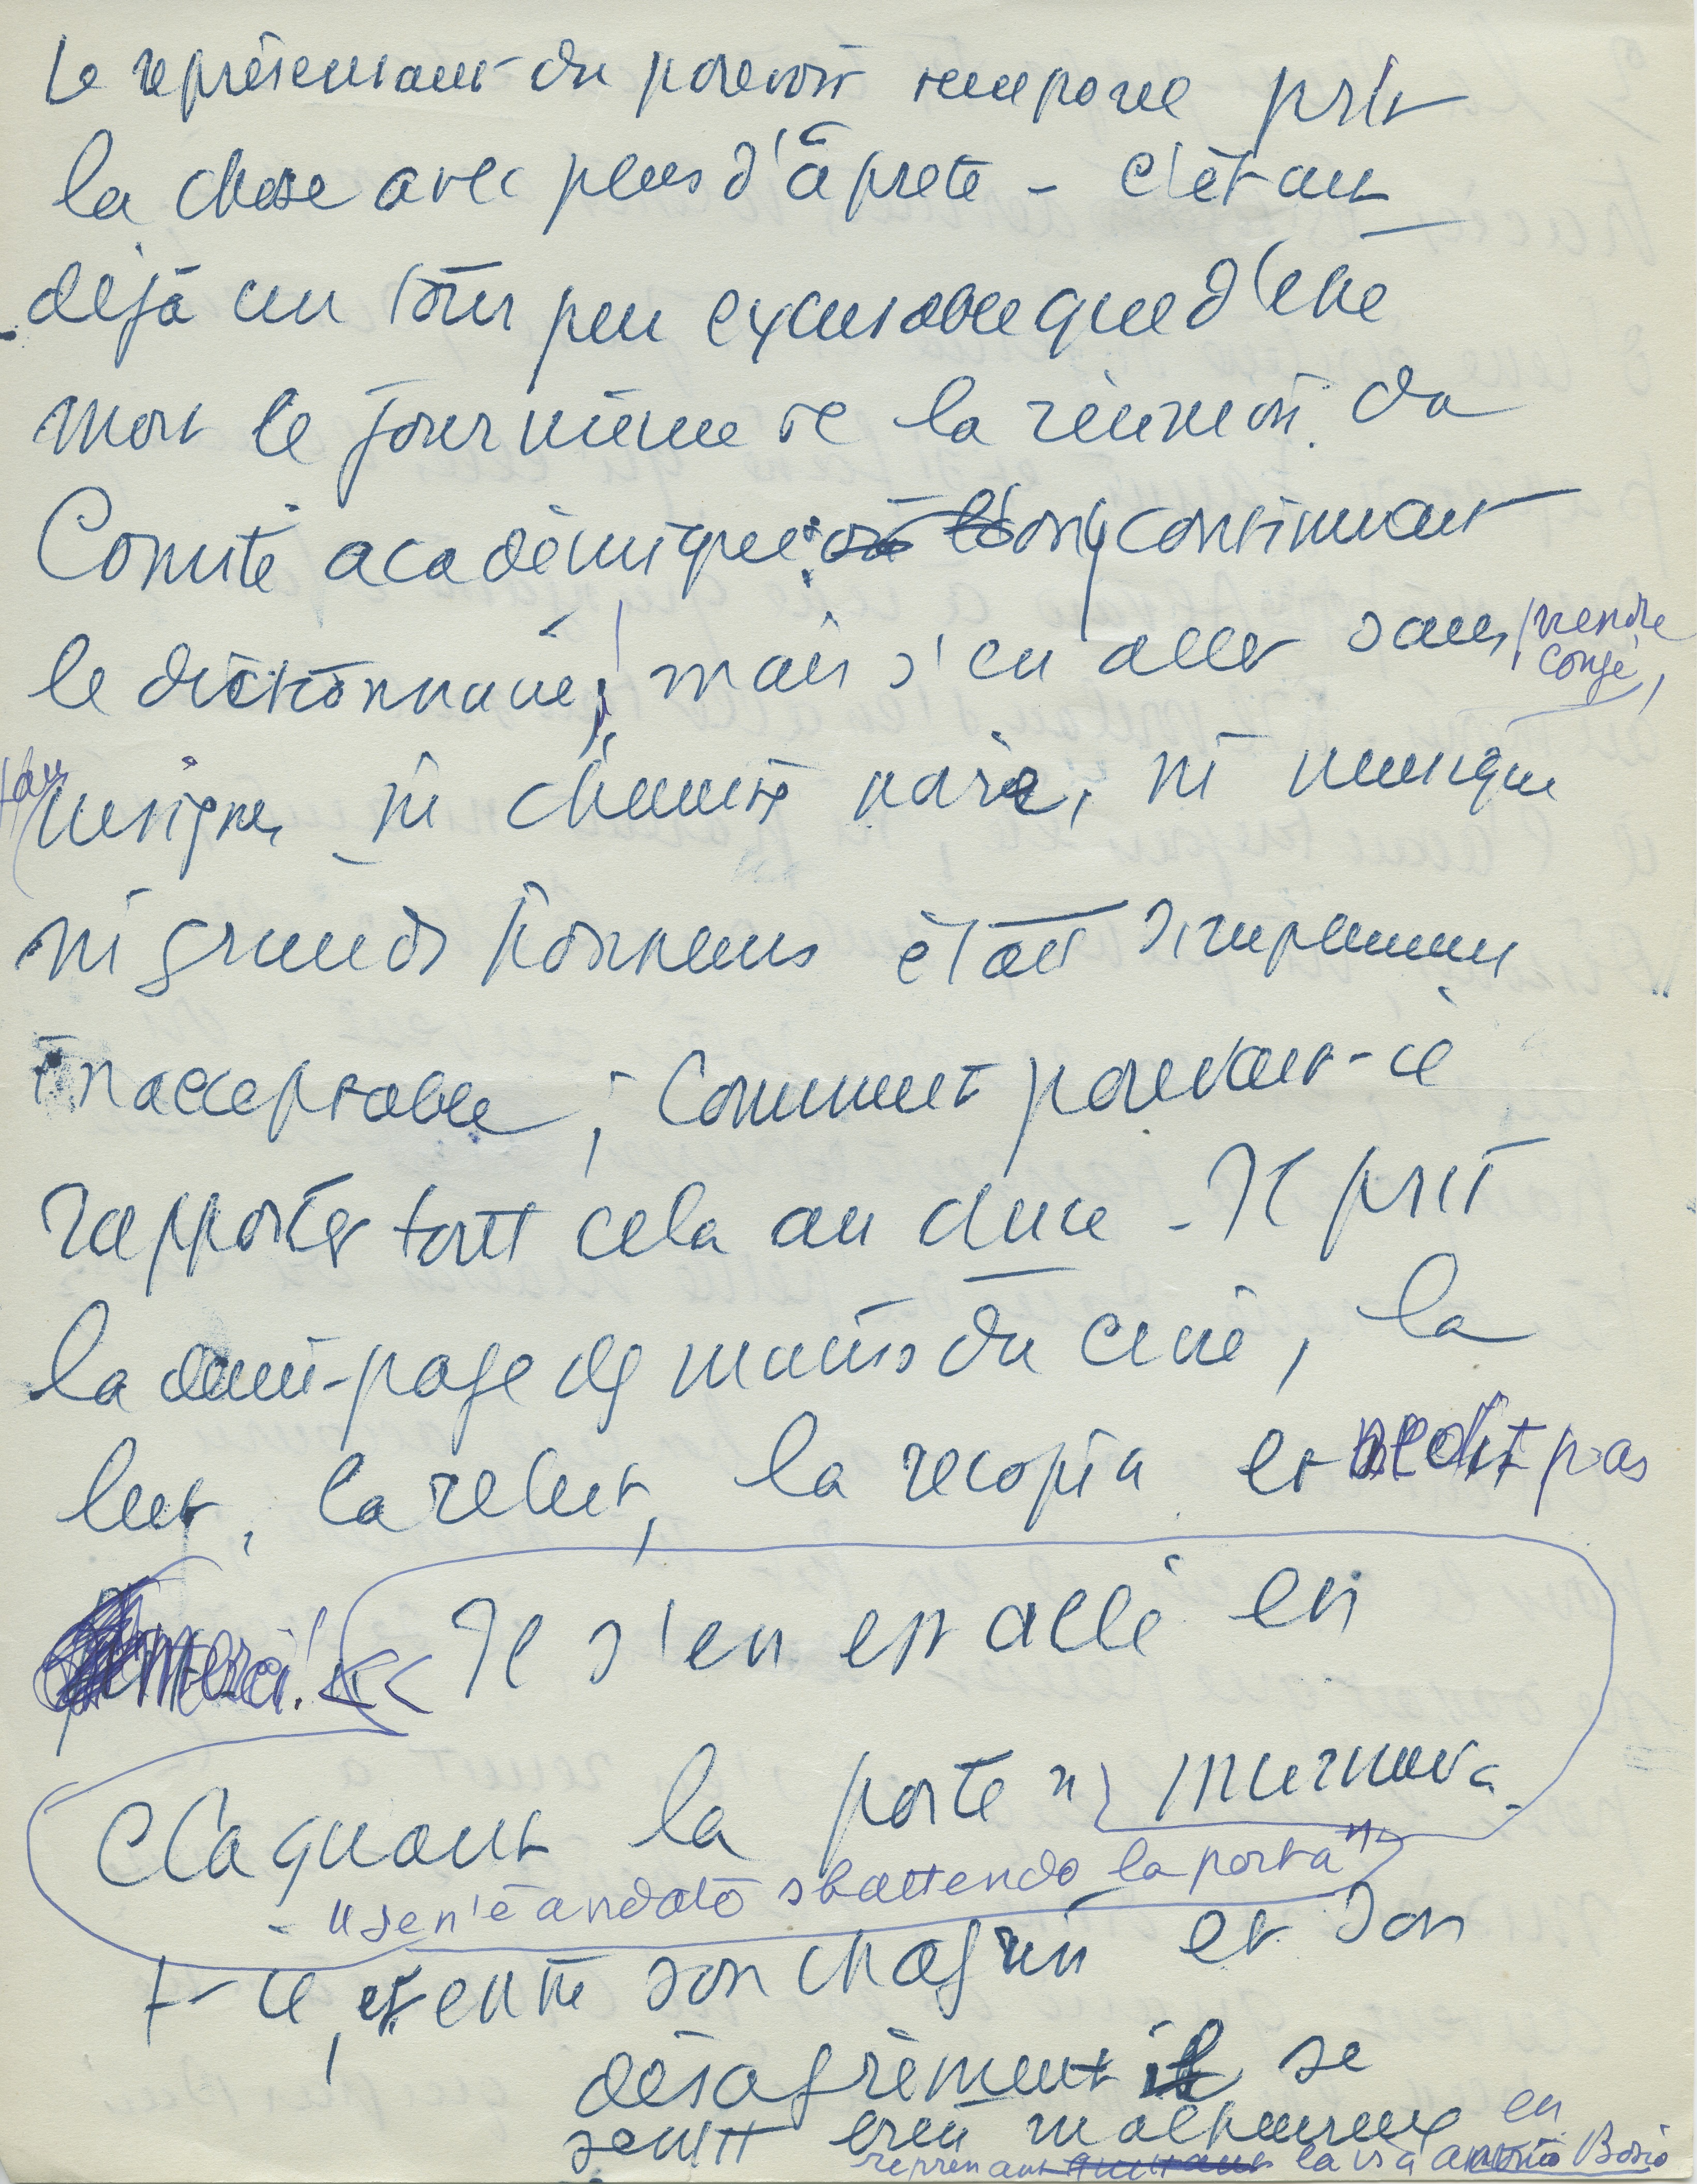 Le représentant du pouvoir temporel prit
la chose avec plus d'âpreté - c'était
déjà un tour peu excusable que d'être
mort le jour même de la réunion du
Comité académique: on y continuait
le dictionnaire! mais s'en aller sans prendre
congé,
insignes, ni chemise noire, ni musique
ni grands honneurs était simplement
inacceptable; Comment pouvait-il
rapporter tout cela au duce - Il prit
la demi-page des mains du curé, la
lut, la relut, la recopia et ne dit pas
merci! << Il s'en est allé en
claquant la porte", murmura
- "se n'è andato sbattendo la porta"
t-il, et entre son chagrin et son
désagrément il se
sentit bien malheureux en
reprenant la via Antonio Bosio